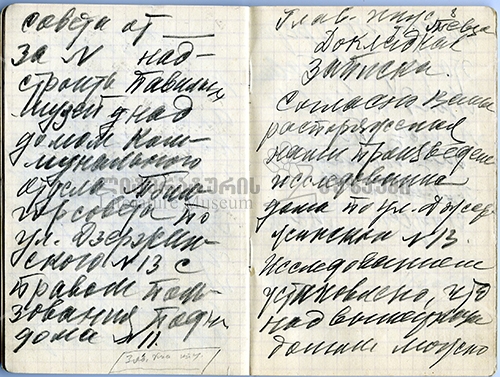 совета от ___
за N над-
строить Павильон
Музей над
домом Ком-
мунального
отдела Тбил-
горсовета по
ул. Дзержин-
ского N 13 с
правом поль-
зования
дома N 11.
Глав. инж.
Докладная
записка.
Согласно Ваше
распоряжения
нами произведено
исследование
дома по ул. Дзер
жинского N 13.
Исследованием
установлено, что
над
домом можно
ლიტერატურის მუზეუმი
Literature Museum